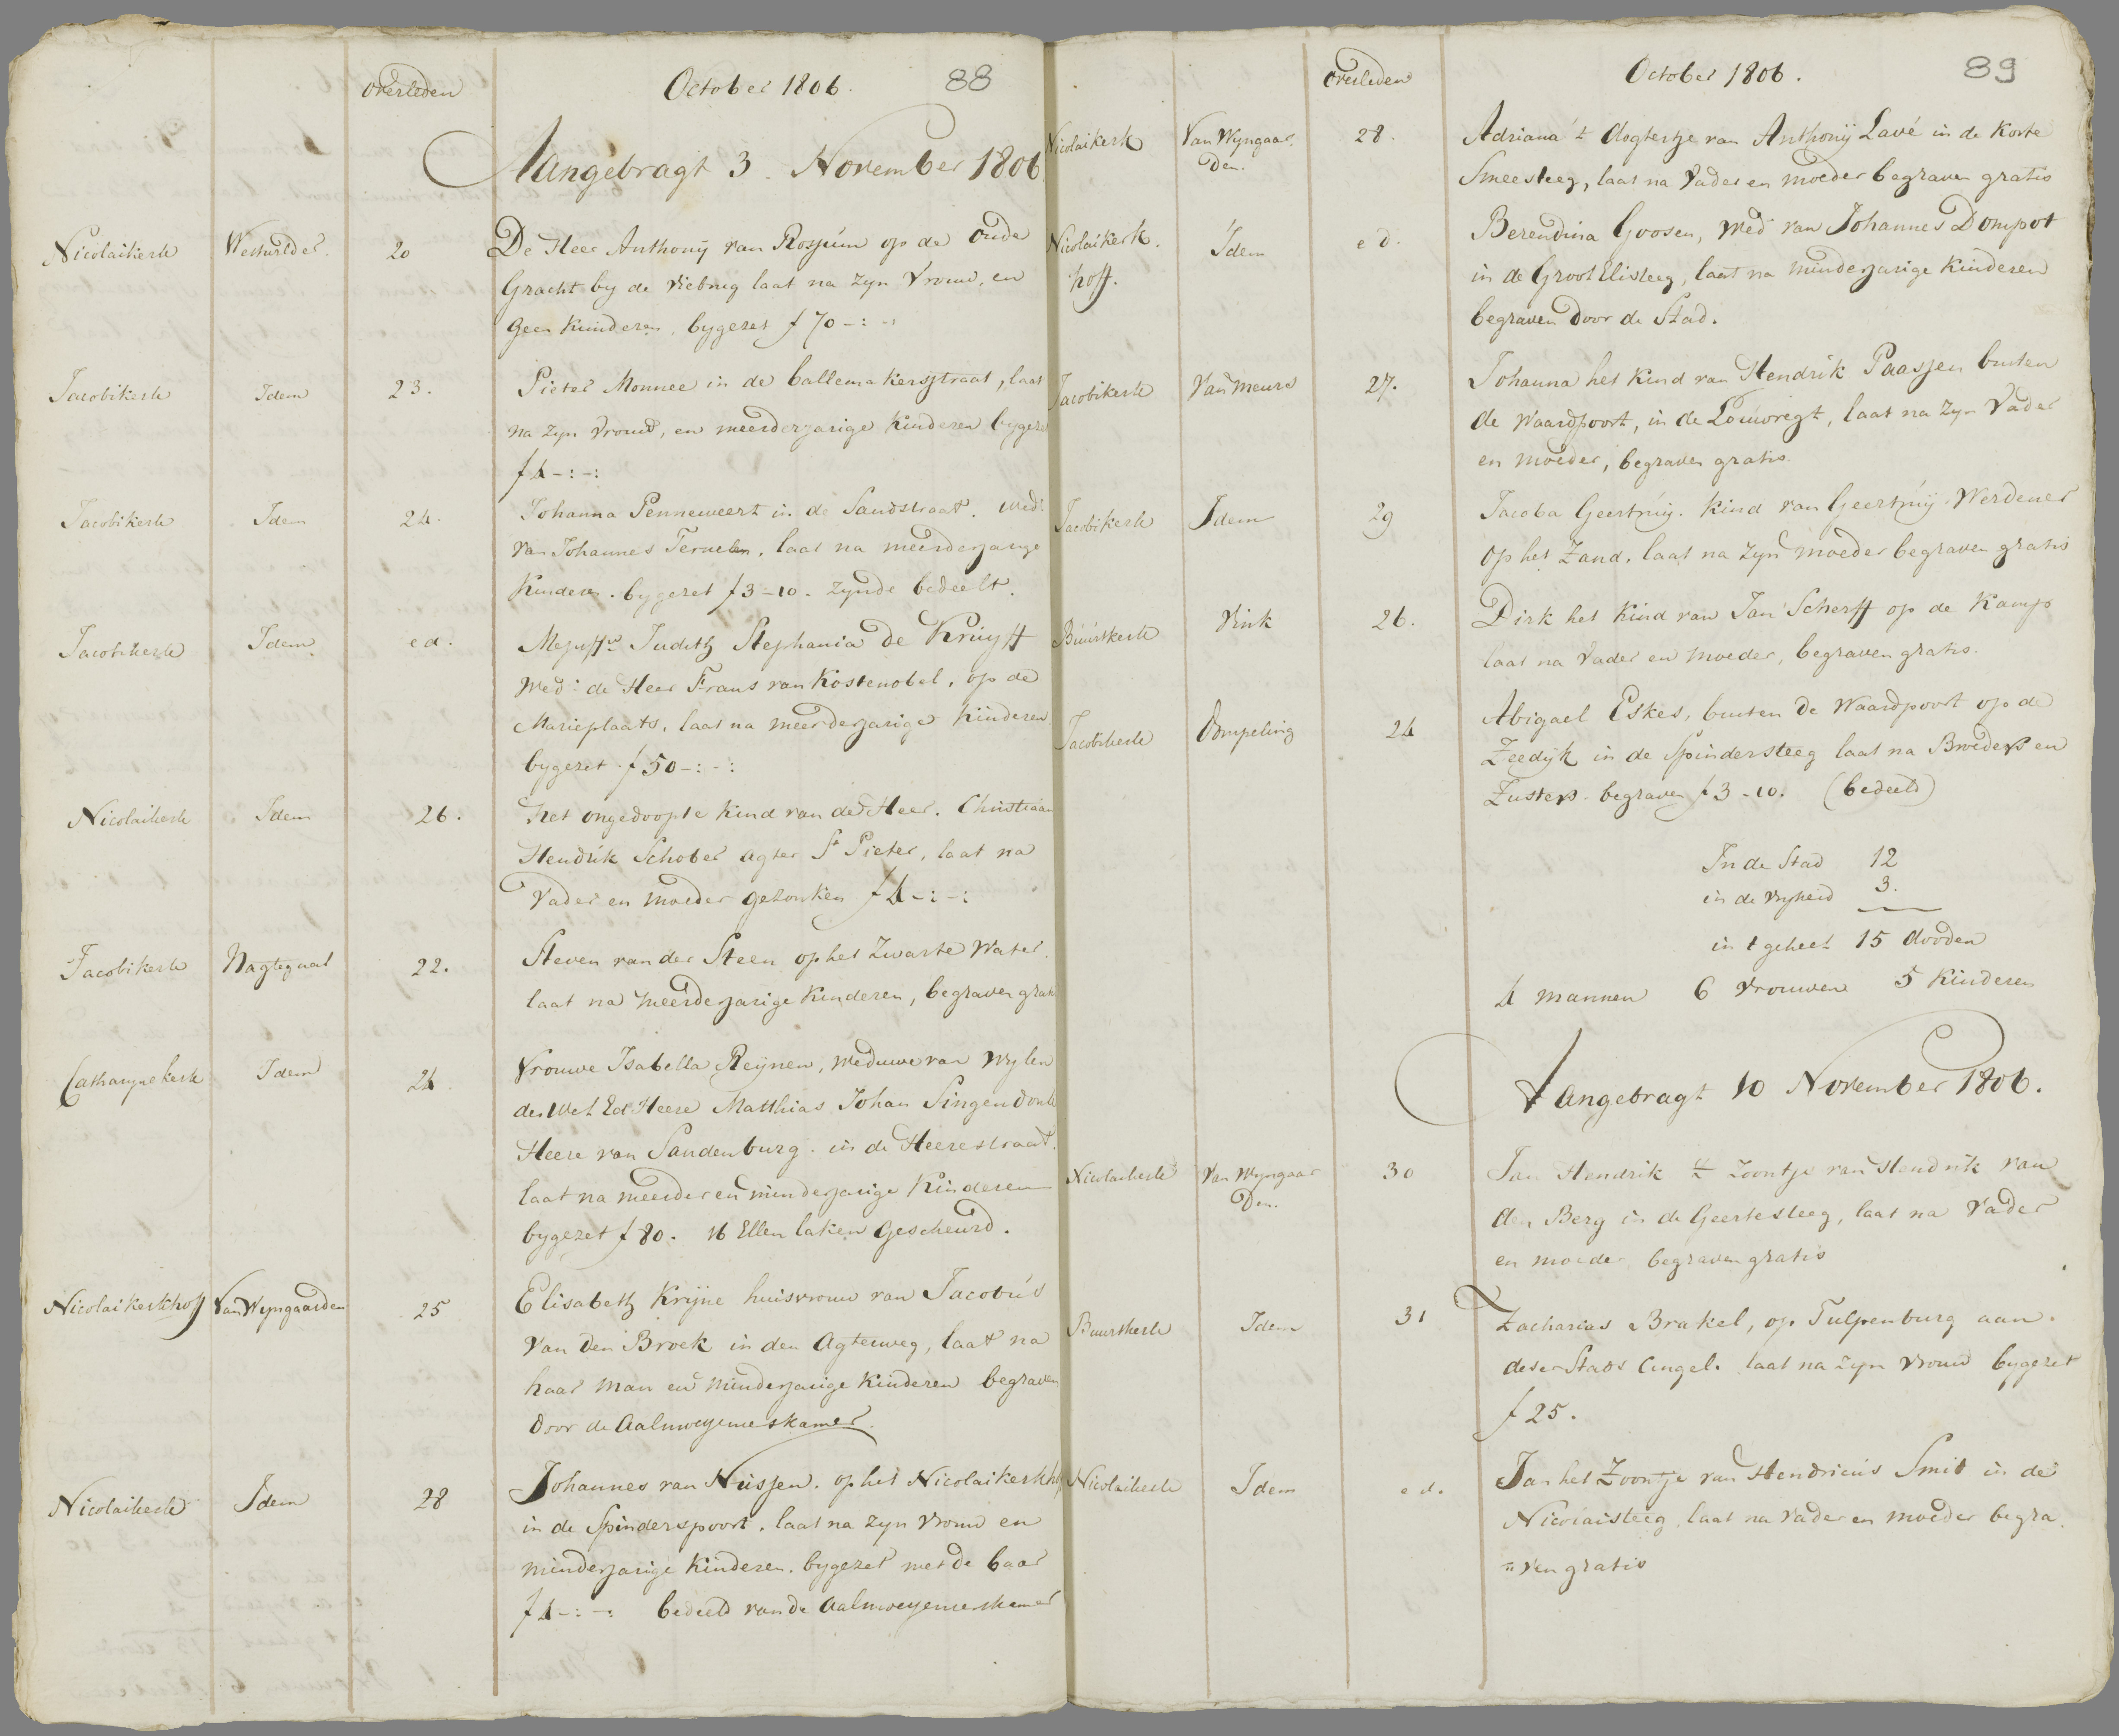 overleden October 1806. 88
Aangebragt 3. November 1806
Nicolaikerk Westwilder. 20 De Heer Anthonij van Rossum op de oude
Gracht by de Viebrug laat na zyn Vrouw, en
geen kinderen, bygezet f 70 -:-
Jacobikerk Idem 23. Pieter Monnee in de ballemakersstraat, laat
na zyn vrouw, en meerderjarige kinderen bygezet
f 4 -:-:
Jacobikerk Idem 24. Johanna Penneweert in de Sandstraat. Wed:
van Johannes laat na meerderjarige
kinderen. bygezet f 3-10. zynde bedeelt.
Jacobikerk Idem ed. Mejuffw. Judith Stephania de Kruyff
Wed: de Heer Frans van Kostenobel, op de
Marieplaats, laat na meerderjarige kinderen.
bygezet f 50 -:-:
Nicolaikerk Idem 26. Het ongedoopte kind van de Heer. Christiaan
Hendrik Schober agter St Pieter, laat na
Vader en moeder gezonken f 4 -:-:
Jacobikerk Nagtegaal 22. Steven van der Steen op het Zwarte Water.
laat na meerderjarige kinderen, begraven gratis
Catharynekerk Idem 24 Vrouwe Isabella Reijnen, weduwe van Wylen
den Wel Ed Heere Matthias Johan Singendonk
Heere van Sandenburg. in de Heerestraat.
laat na meerder en minderjarige Kinderen
bygezet f 80. 16 Ellen laken Gescheurd.
Nicolaikerkhoff Van Wyngaarden 25 Elisabeth Krijne huisvrouw van Jacobus
van den Broek in den Agterweg, laat na
haar man en minderjarige kinderen begraven
door de Aalmoeseneskamer.
Nicolaikerk Idem 28 Johannes van Nussen. op het Nicolaikerkh
in de Spinderspoort. laat na zyn vrouw en
minderjarige kinderen. bygezet met de baar
f 4 -:-: bedeeld van de Aalmoeseneskamer
overleden October 1806. 89
Nicolaikerk Van Wyngaar, 28. Adriana 't dogtertje van Anthonij Lavé in de Korte
den. Smeesteeg, laat na Vader en moeder begraven gratis
Nicolaikerk. Idem ed. Berendina Goosen, Wed van Johannes Dompot
hoff. in de Groot Elisteeg, laat na minderjarige kinderen
begraven door de Stad.
Jacobikerk Van Meurs 27. Johanna het kind van Hendrik Paassen buiten
de Waardpoort, in de Louwregt, laat na zyn Vader
en moeder, begraven gratis.
Jacobikerk Idem 29 Jacoba Geertruij. kind van Geertruij Werdener
op het Zand, laat na zyn moeder begraven gratis
Buurtkerk Vink 26. Dirk het kind van Jan Scherff op de Kamp
laat na Vader en moeder, begraven gratis.
Jacobikerk Dompeling 24 Abigael Eskes, buiten de Waardpoort op de
Zeedyk in de Spindersteeg laat na Broeders en
Zusters. begraven f 3-10. (bedeeld)
In de Stad 12
in de vryheid 3.
in t geheel 15 dooden
4 mannen 6 Vrouwen 5 Kinderen
Aangebragt 10 November 1806.
Nicolaikerk Van Wyngaar 30 Jan Hendrik 't zoontje van Hendrik van
den. den Berg in de Geertesteeg, laat na Vader
en moeder begraven gratis
Buurtkerk Idem 31 Zacharias Brakel, op Tulpenburg aan.
deser Stads Cingel. laat na zyn Vrouw bygezet
f 25.
Nicolaikerk Idem ed. Jan het Zoontje van Hendricus Smit in de
Nicolaisteeg laat na Vader en moeder begra.
=ven gratis